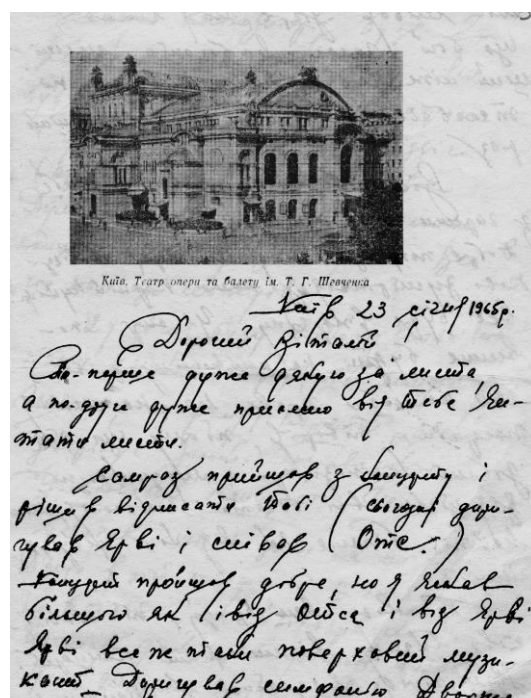 Київ. Театр опери та балету ім. Т. Г. Шевченка
Київ 23 січня 1965р.
Дорогий Віталій!
По-перше дуже дякую за листа,
а по-друге дуже приємно від тебе чи-
тати листи.
Саме прийшов з концерту і
рішив відписати Тобі (Сьогодні дири-
гував Ярві і співав (Отс.)
Концерт пройшов добре, но я чекав
більшого як і від Отса і від Ярві
Ярві все ж таки поверховий музи-
кант. Диригував симфонію